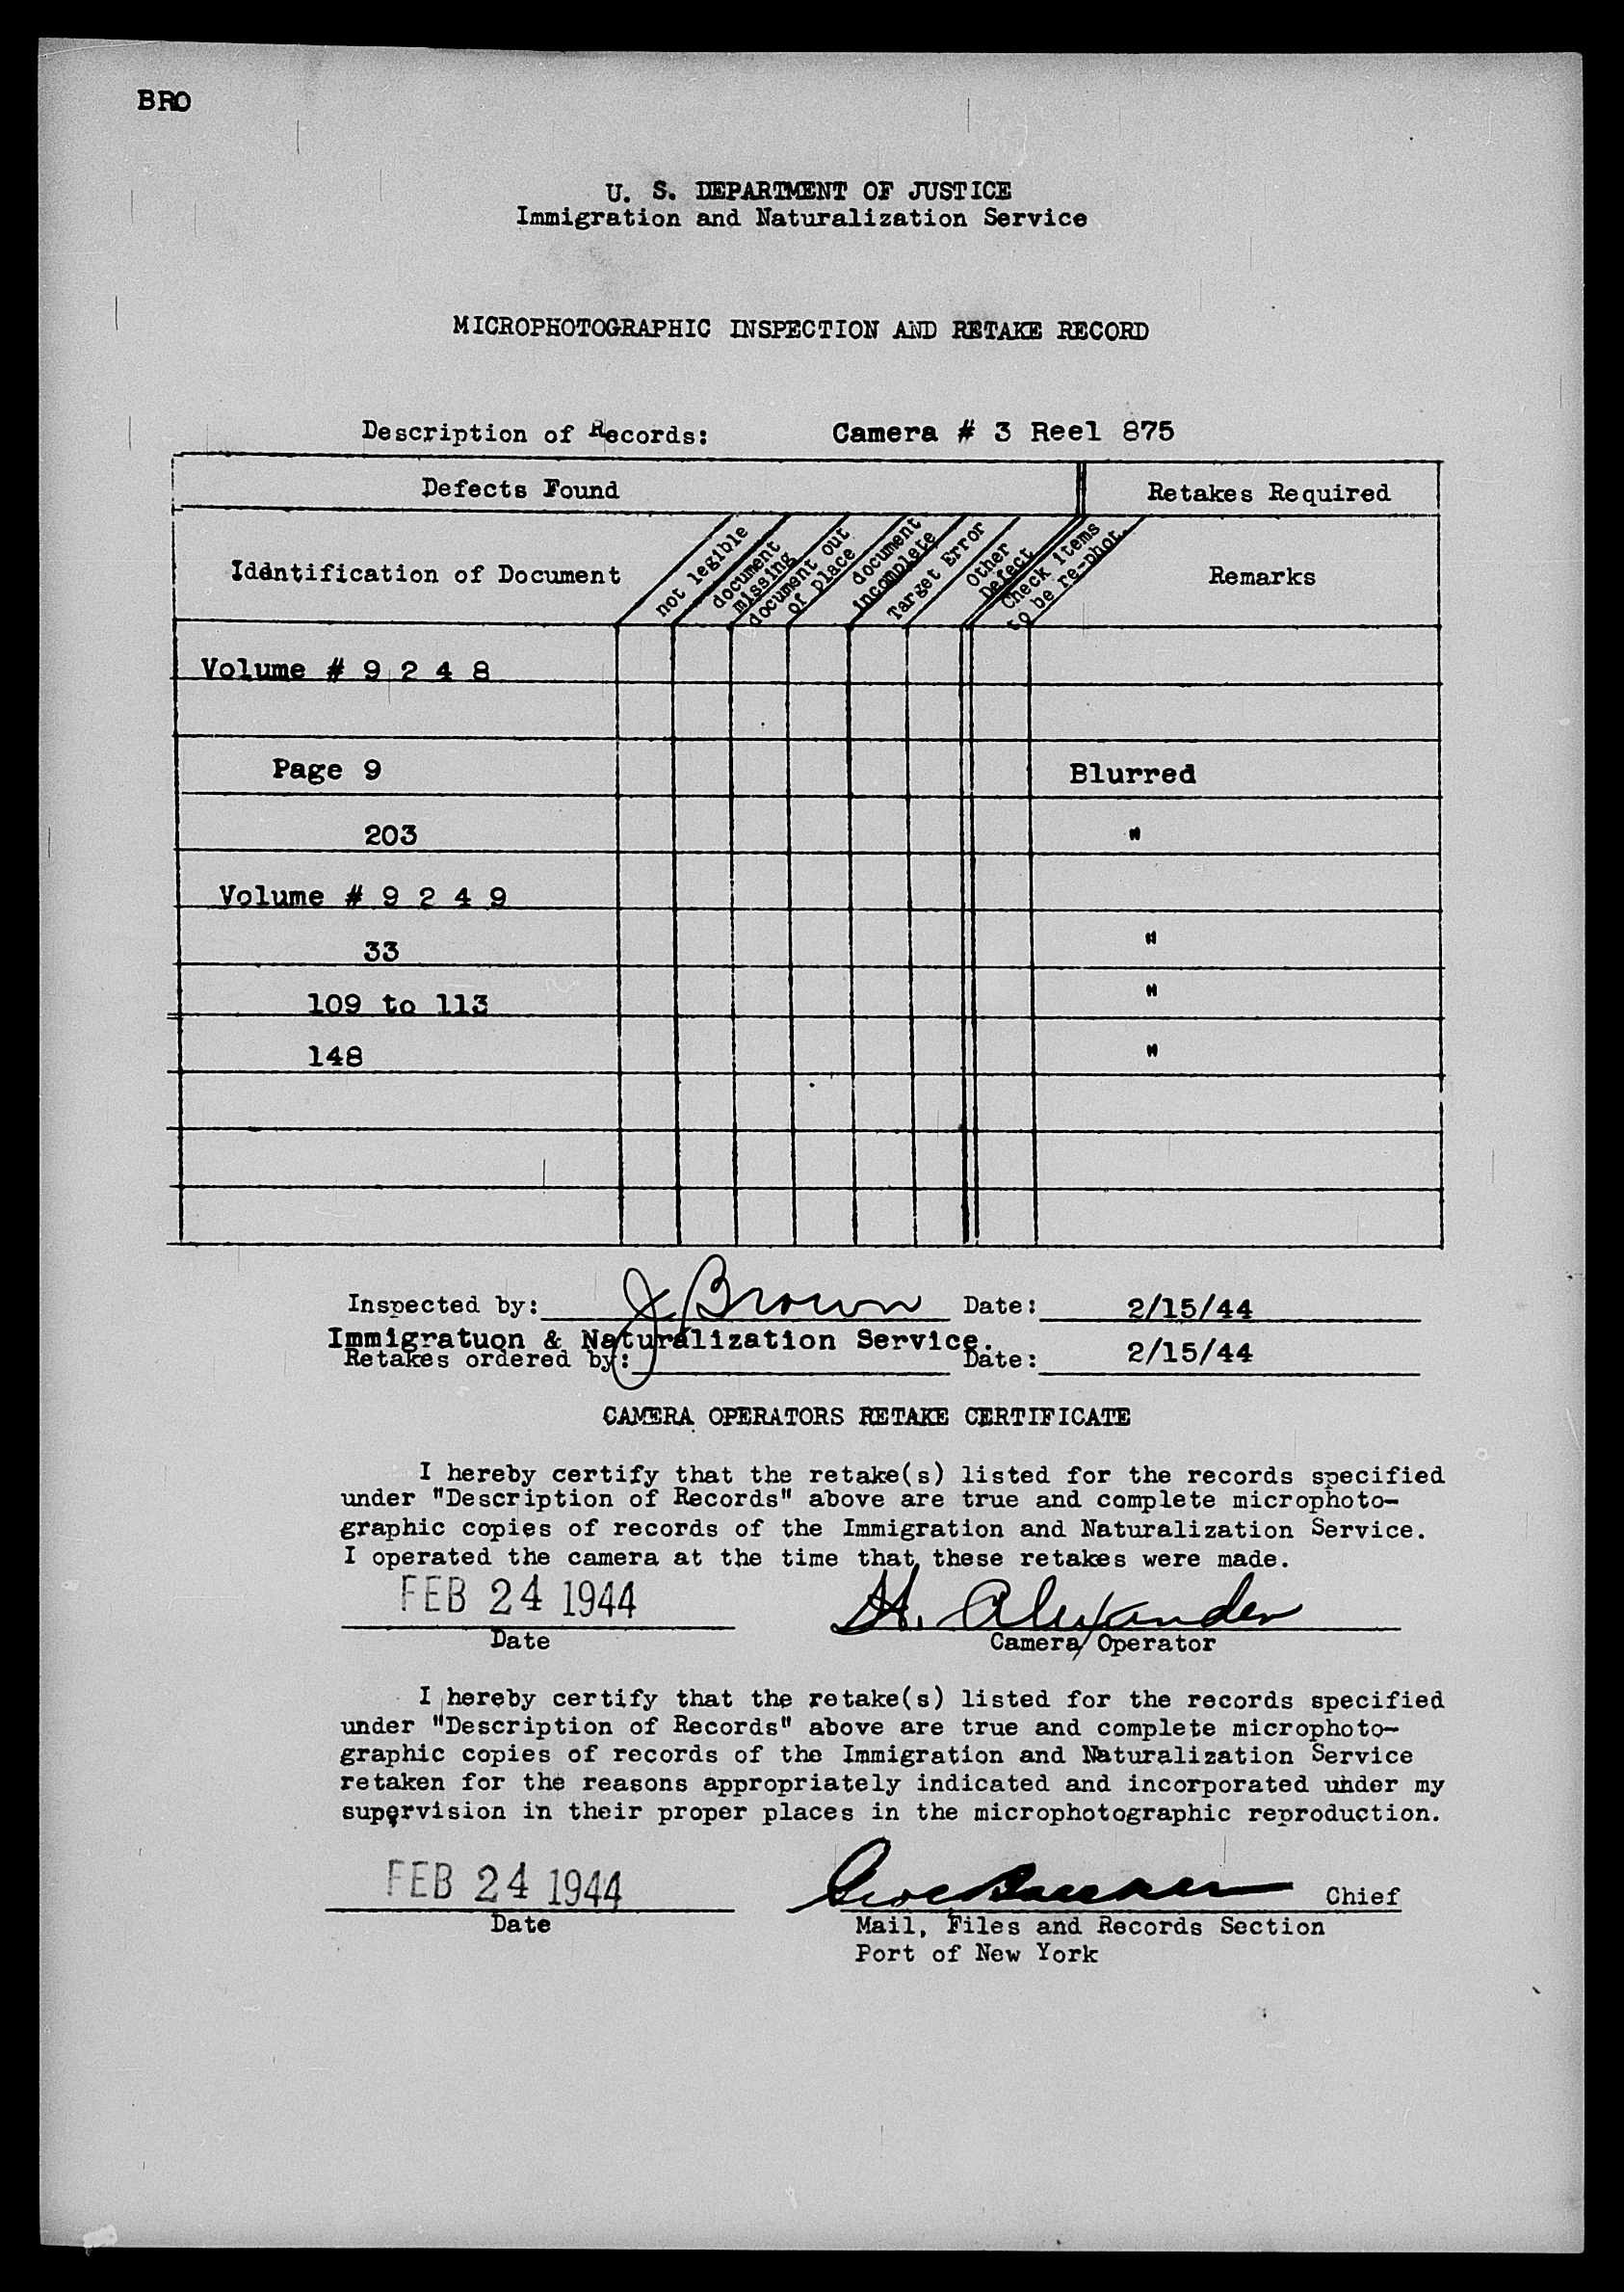 BRO
U. S. DEPARTMENT OF JUSTICE
Immigration and Naturalization Service
MICROPHOTOGRAPHIC INSPECTION AND RETAKE RECORD
Description of Records: Camera # 3 Reel 875
Defects Found Retakes Required
Identification of Document
not legible
document missing
document out of place
document incomplete
Target Error
Other Defect
Check items to be re-phot.
Remarks
Volume # 9 2 4 8
Page 9 Blurred
203 "
Volume # 9 2 4 9
33 "
109 to 113 "
148 "
Inspected by: J. Brown Date: 2/15/44
Immigratuon & Naturalization Service.
Retakes ordered by: Date: 2/15/44
CAMERA OPERATORS RETAKE CERTIFICATE
I hereby certify that the retake(s) listed for the records specified
under "Description of Records" above are true and complete microphoto-
graphic copies of records of the Immigration and Naturalization Service.
I operated the camera at the time that these retakes were made.
FEB 24 1944 H. Alexander
Date Camera Operator
I hereby certify that the retake(s) listed for the records specified
under "Description of Records" above are true and complete microphoto-
graphic copies of records of the Immigration and Naturalization Service
retaken for the reasons appropriately indicated and incorporated under my
supervision in their proper places in the microphotographic reproduction.
FEB 24 1944 Chief
Date Mail, Files and Records Section
Port of New York